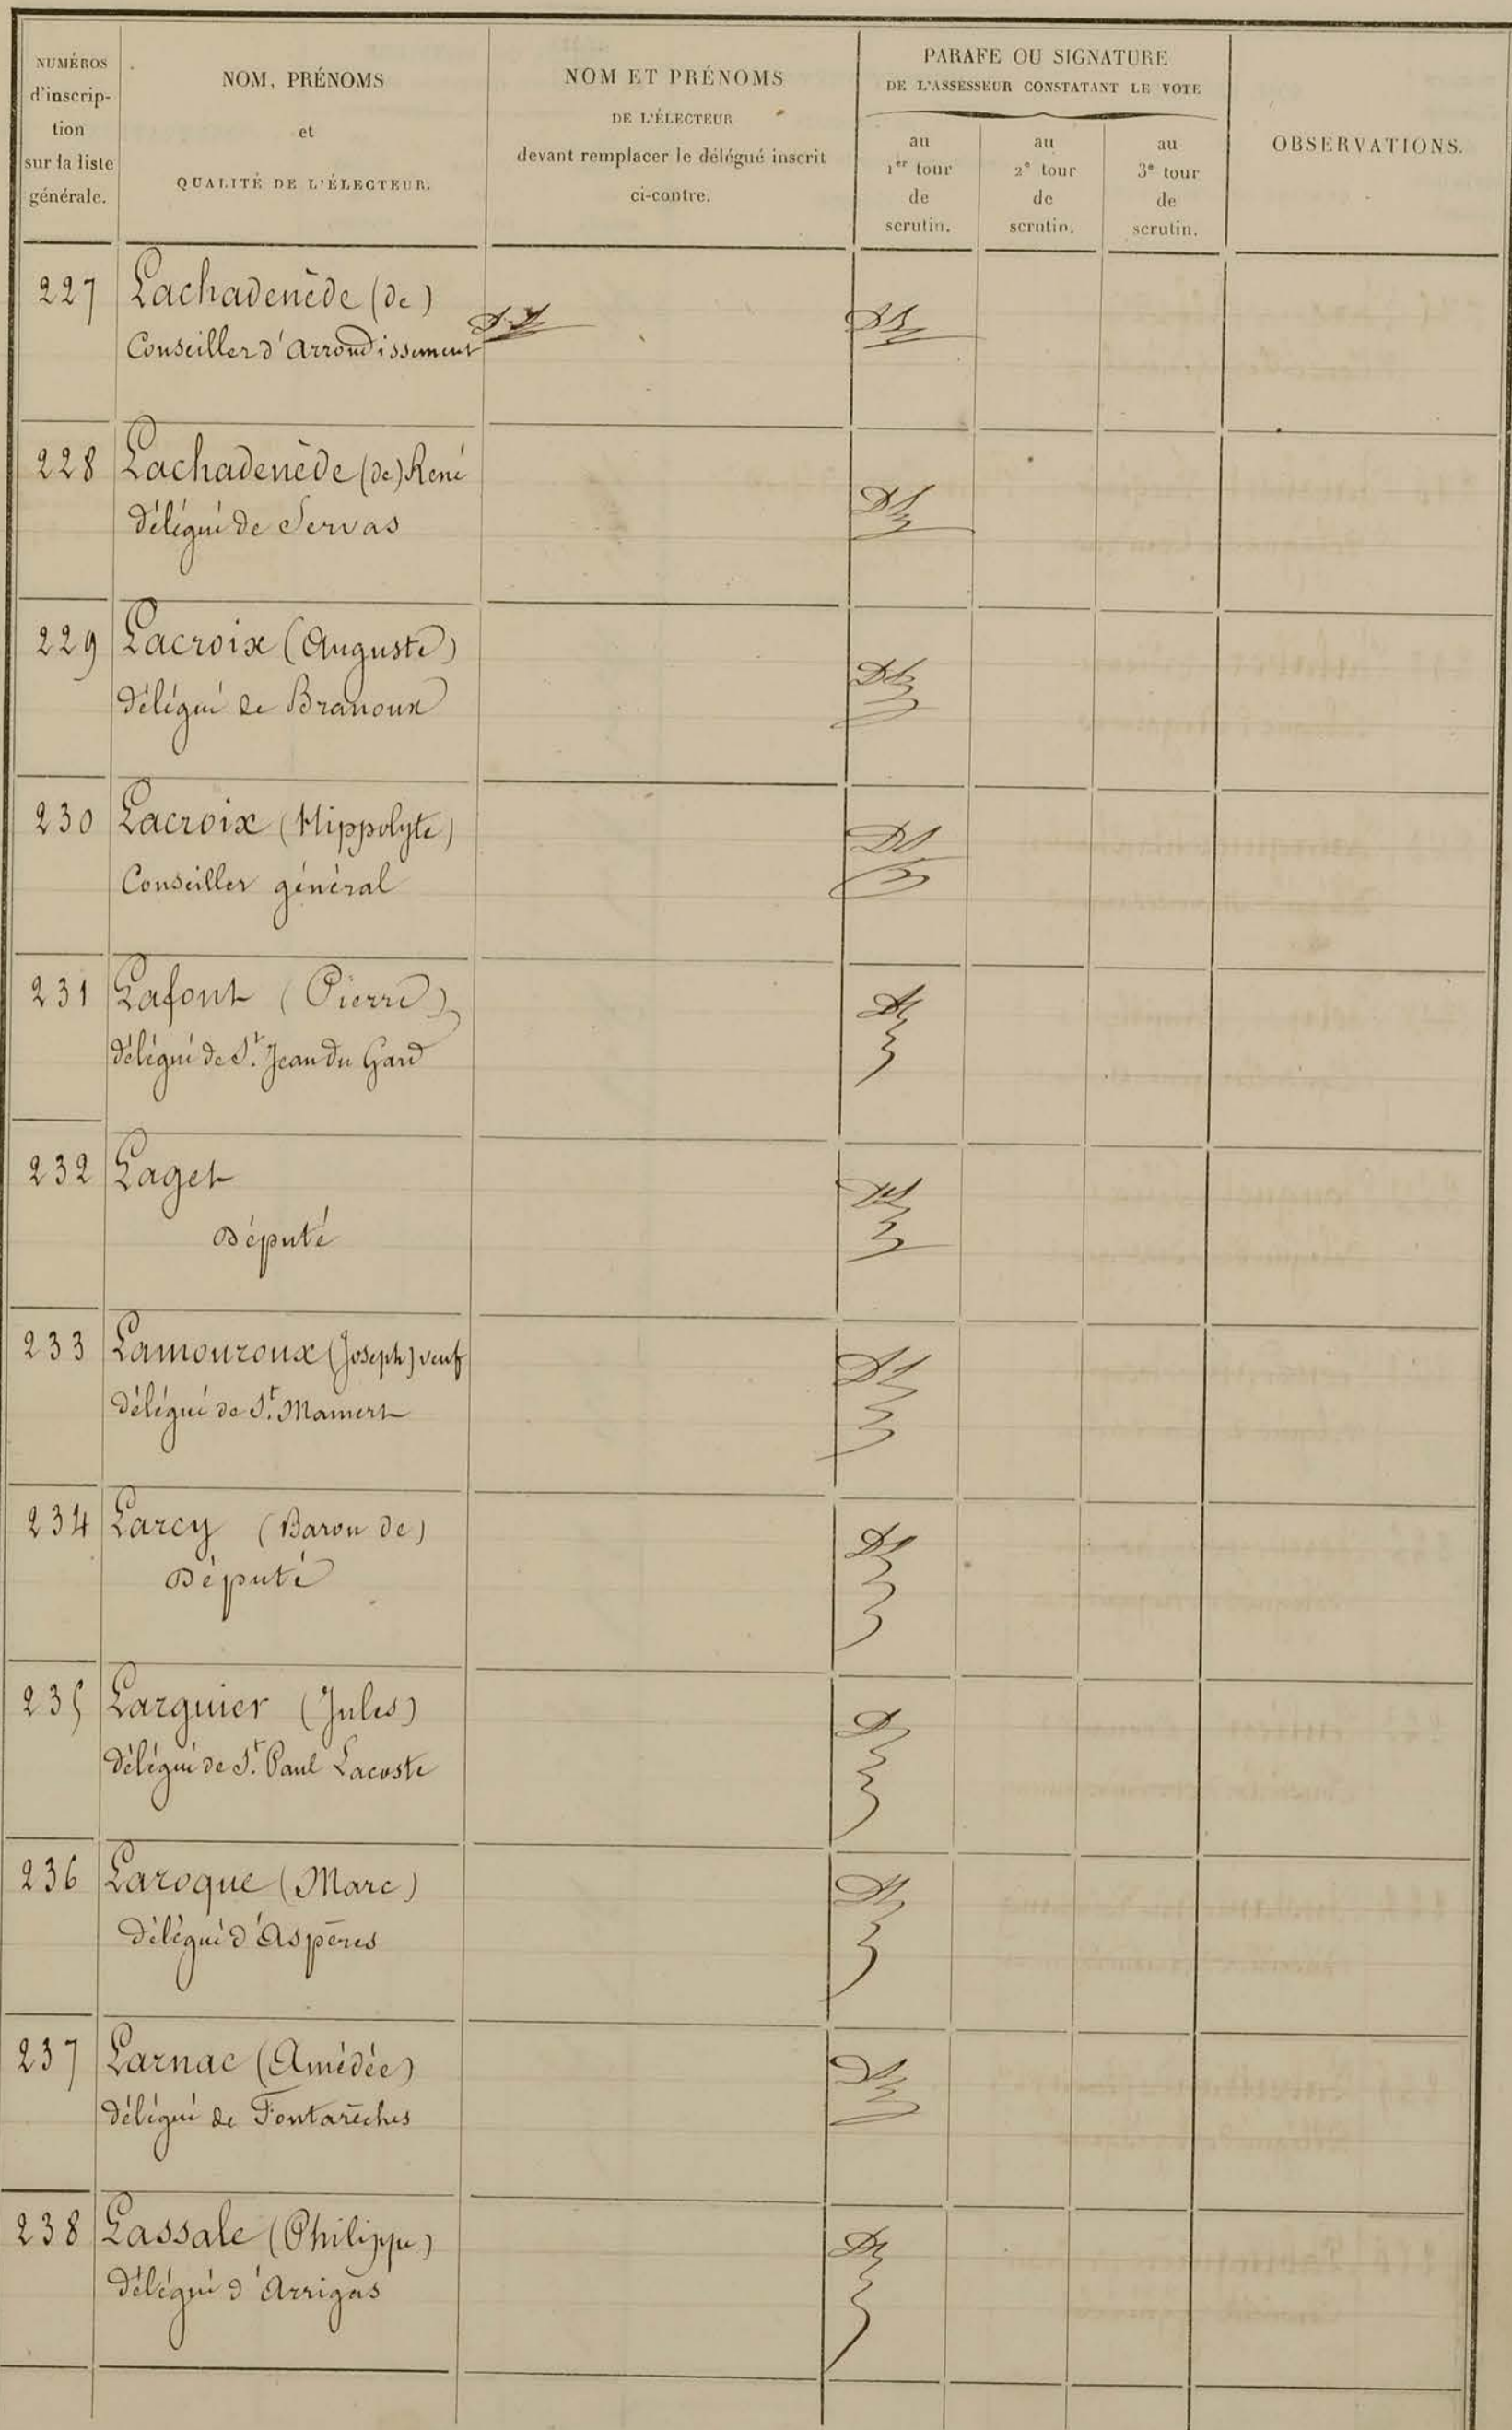 NUMÉROS
d'inscrip-
tion
sur la liste
générale.
NOM, PRÉNOMS
et
QUALITÉ DE L'ÉLECTEUR.
NOM ET PRÉNOMS
DE L'ÉLECTEUR
devant remplacer le délégué inscrit
ci-contre.
PARAFE OU SIGNATURE
DE L'ASSESSEUR CONSTATANT LE VOTE
au
1er tour
de
scrutin.
au
2e tour
de
scrutin.
au
3e tour
de
scrutin.
OBSERVATIONS.
227 Lachadenède (de)
Conseiller d'arrondissement
228 Lachadenède (de) René
délégué de Servas
229 Lacroix (Auguste)
délégué de Branoux
230 Lacroix (Hippolyte)
Conseiller général
231 Lafont (Pierre)
délégué de St. Jean du Gard
232 Laget
Député
233 Lamouroux (Joseph) veuf
délégué de St. Mamert
234 Larcy (Baron de)
Député
235 Larguier (Jules)
délégué de St. Paul Lacoste
236 Laroque (Marc)
délégué d'Aspères
237 Larnac (Amédée)
délégué de Fontarèches
238 Lassale (Philippe)
délégué d'Arrigas